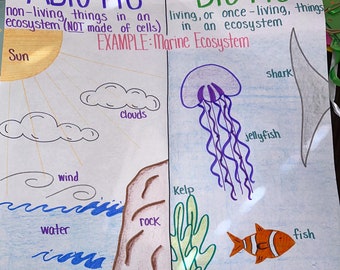 ABIOTIC
non-living, things in an
ecosystem (NOT made of cells)
BIOTIC
living, or once-living, things
in an ecosystem
EXAMPLE: Marine Ecosystem
Sun
clouds
wind
water
rock
shark
jellyfish
Kelp
fish